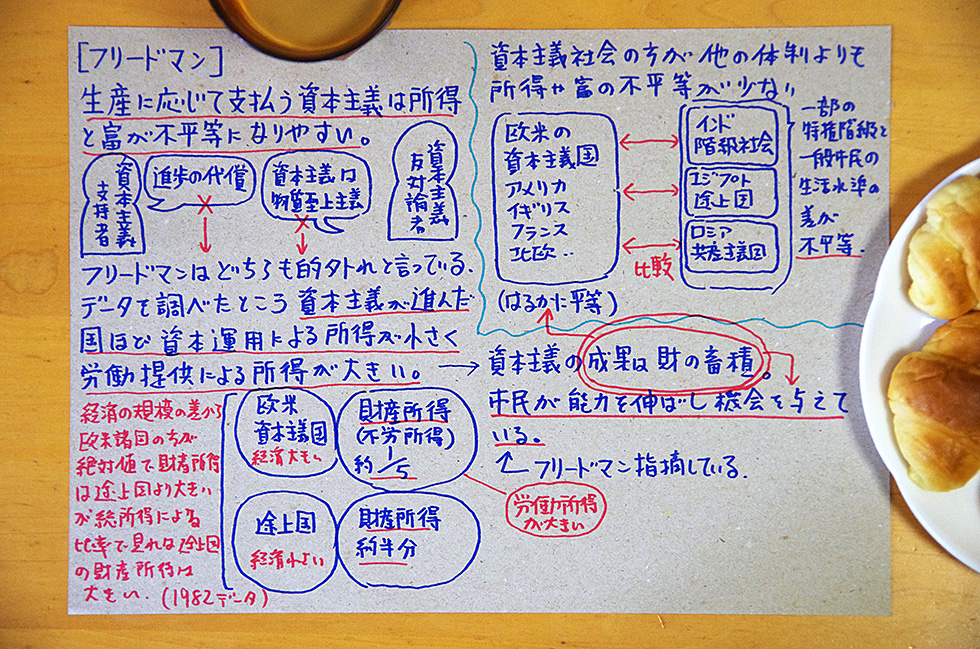 [フリードマン]
生産に応じて支払う資本主義は所得
と富が不平等になりやすい。
資本主義
支持者
進歩の代償
資本主義は
物質至上主義
資本主義
反対論者
フリードマンはどちらも的外れと言っている、
データで調べたところ資本主義が進んだ
国ほど資本運用による所得が小さく
労働提供による所得が大きい。
経済の規模の差から
欧米諸国の方が
絶対値で財産所得
は途上国より大きい
が総所得による
比率で見れば途上国
の財産所得は
大きい.(1982データ)
欧米
資本主義国
経済大きい
財産所得
(不労所得)
約1/5
途上国
経済小さい
財産所得
約半分
労働所得
が大きい
資本主義社会の方が他の体制よりも
所得や富の不平等が少ない
欧米の
資本主義国
アメリカ
イギリス
フランス
北欧..
(はるかに平等)
比較
インド
階級社会
エジプト
途上国
ロシア
共産主義国
一部の
特権階級と
一般市民の
生活水準の
差が
不平等.
資本主義の成果は財の蓄積。
市民が能力を伸ばし機会を与えて
いる。
フリードマン指摘している.